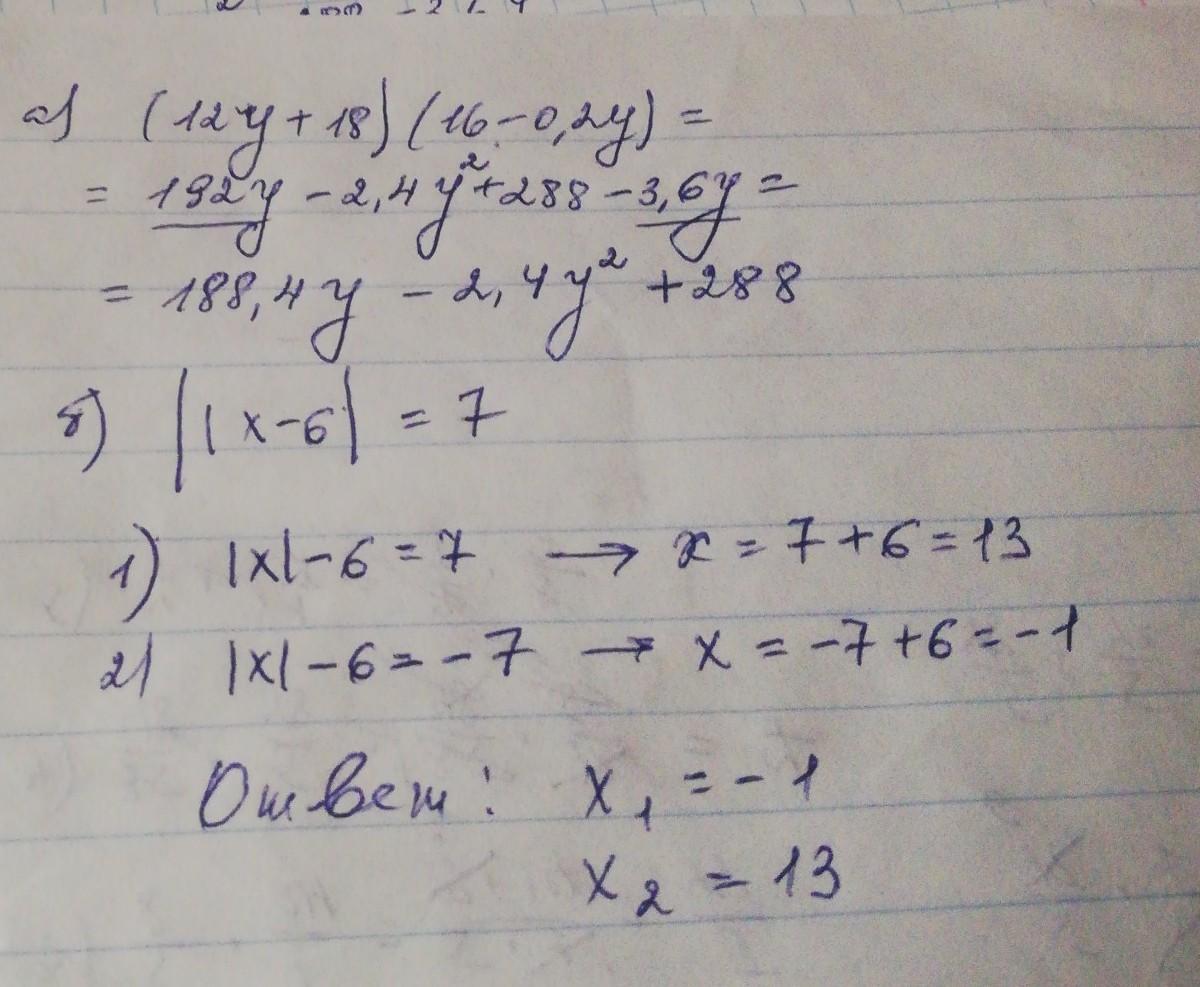 а) (12y + 18) (16 - 0,2y) =
= 192y - 2,4y² + 288 - 3,6y =
= 188,4y - 2,4y² + 288
б) ||x-6| = 7
1) |x| - 6 = 7 → x = 7 + 6 = 13
2) |x| - 6 = -7 → x = -7 + 6 = -1
Ответ: x₁ = -1
x₂ = 13